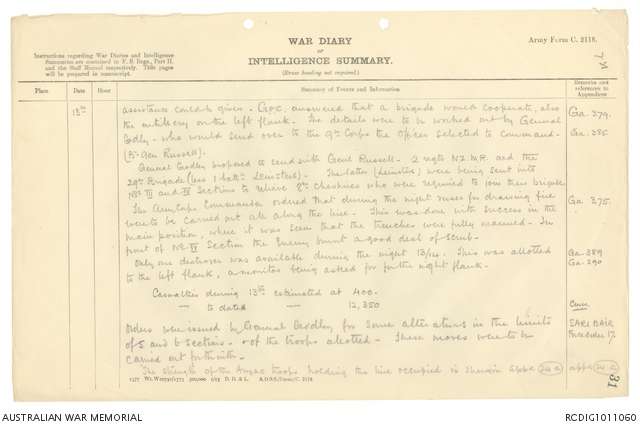 WAR DIARY
or
INTELLIGENCE SUMMARY.
(Erase heading not required.)
Army Form C. 2118.
Instructions regarding War Diaries and Intelligence
Summaries are contained in F. S. Regs., Part II.
and the Staff Manual respectively. Title pages
will be prepared in manuscript.
Place Date Hour Summary of Events and Information Remarks and
references to
Appendices
13th assistance could be given. Corps answered that a brigade would cooperate, also
the artillery on the left flank. The details were to be worked out by General Ga. 279.
Godley - who would send over to the 9th Corps the officer selected to command - Ga. 285
(Br. Gen Russell).
General Godley proposed to send with Genl Russell - 2 regts N.Z.M.R. and the
29th Brigade (less 1 batt. Leinsters). The latter (Leinsters) were being sent into
Nos III and IV Sections to relieve 8th Cheshires who were required to join their brigade
The Army Corps Commander ordered that during the night ruses for drawing fire Ga 275.
were to be carried out all along the line. This was done with success in the
main position, where it was seen that the trenches were fully manned. In
front of No IV Section the Enemy burnt a good deal of scrub.
Only one destroyer was available during the night 13/14. This was allotted Ga 289
to the left flank, a monitor being asked for for the right flank. Ga 290
Casualties during 13th estimated at 400.
— to dated — 12,350
Orders were issued by General Godley for some alterations in the limits SARI BAIR
of 5 and 6 sections - & of the troops allotted. These moves were to be
carried out forthwith.
The strength of the Anzac troops holding the line occupied is shewn in appx 24 a appx 24 a
31
1577 Wt. W10791/1773 500,000 1/15 D. D. & L. A.D.S.S./Forms/C. 2118.
AUSTRALIAN WAR MEMORIAL RCDIG1011060